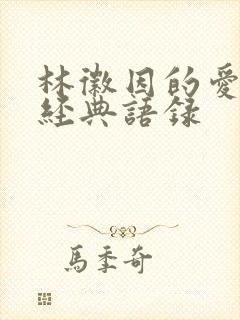 林徽因的愛
經典語錄
馬季奇